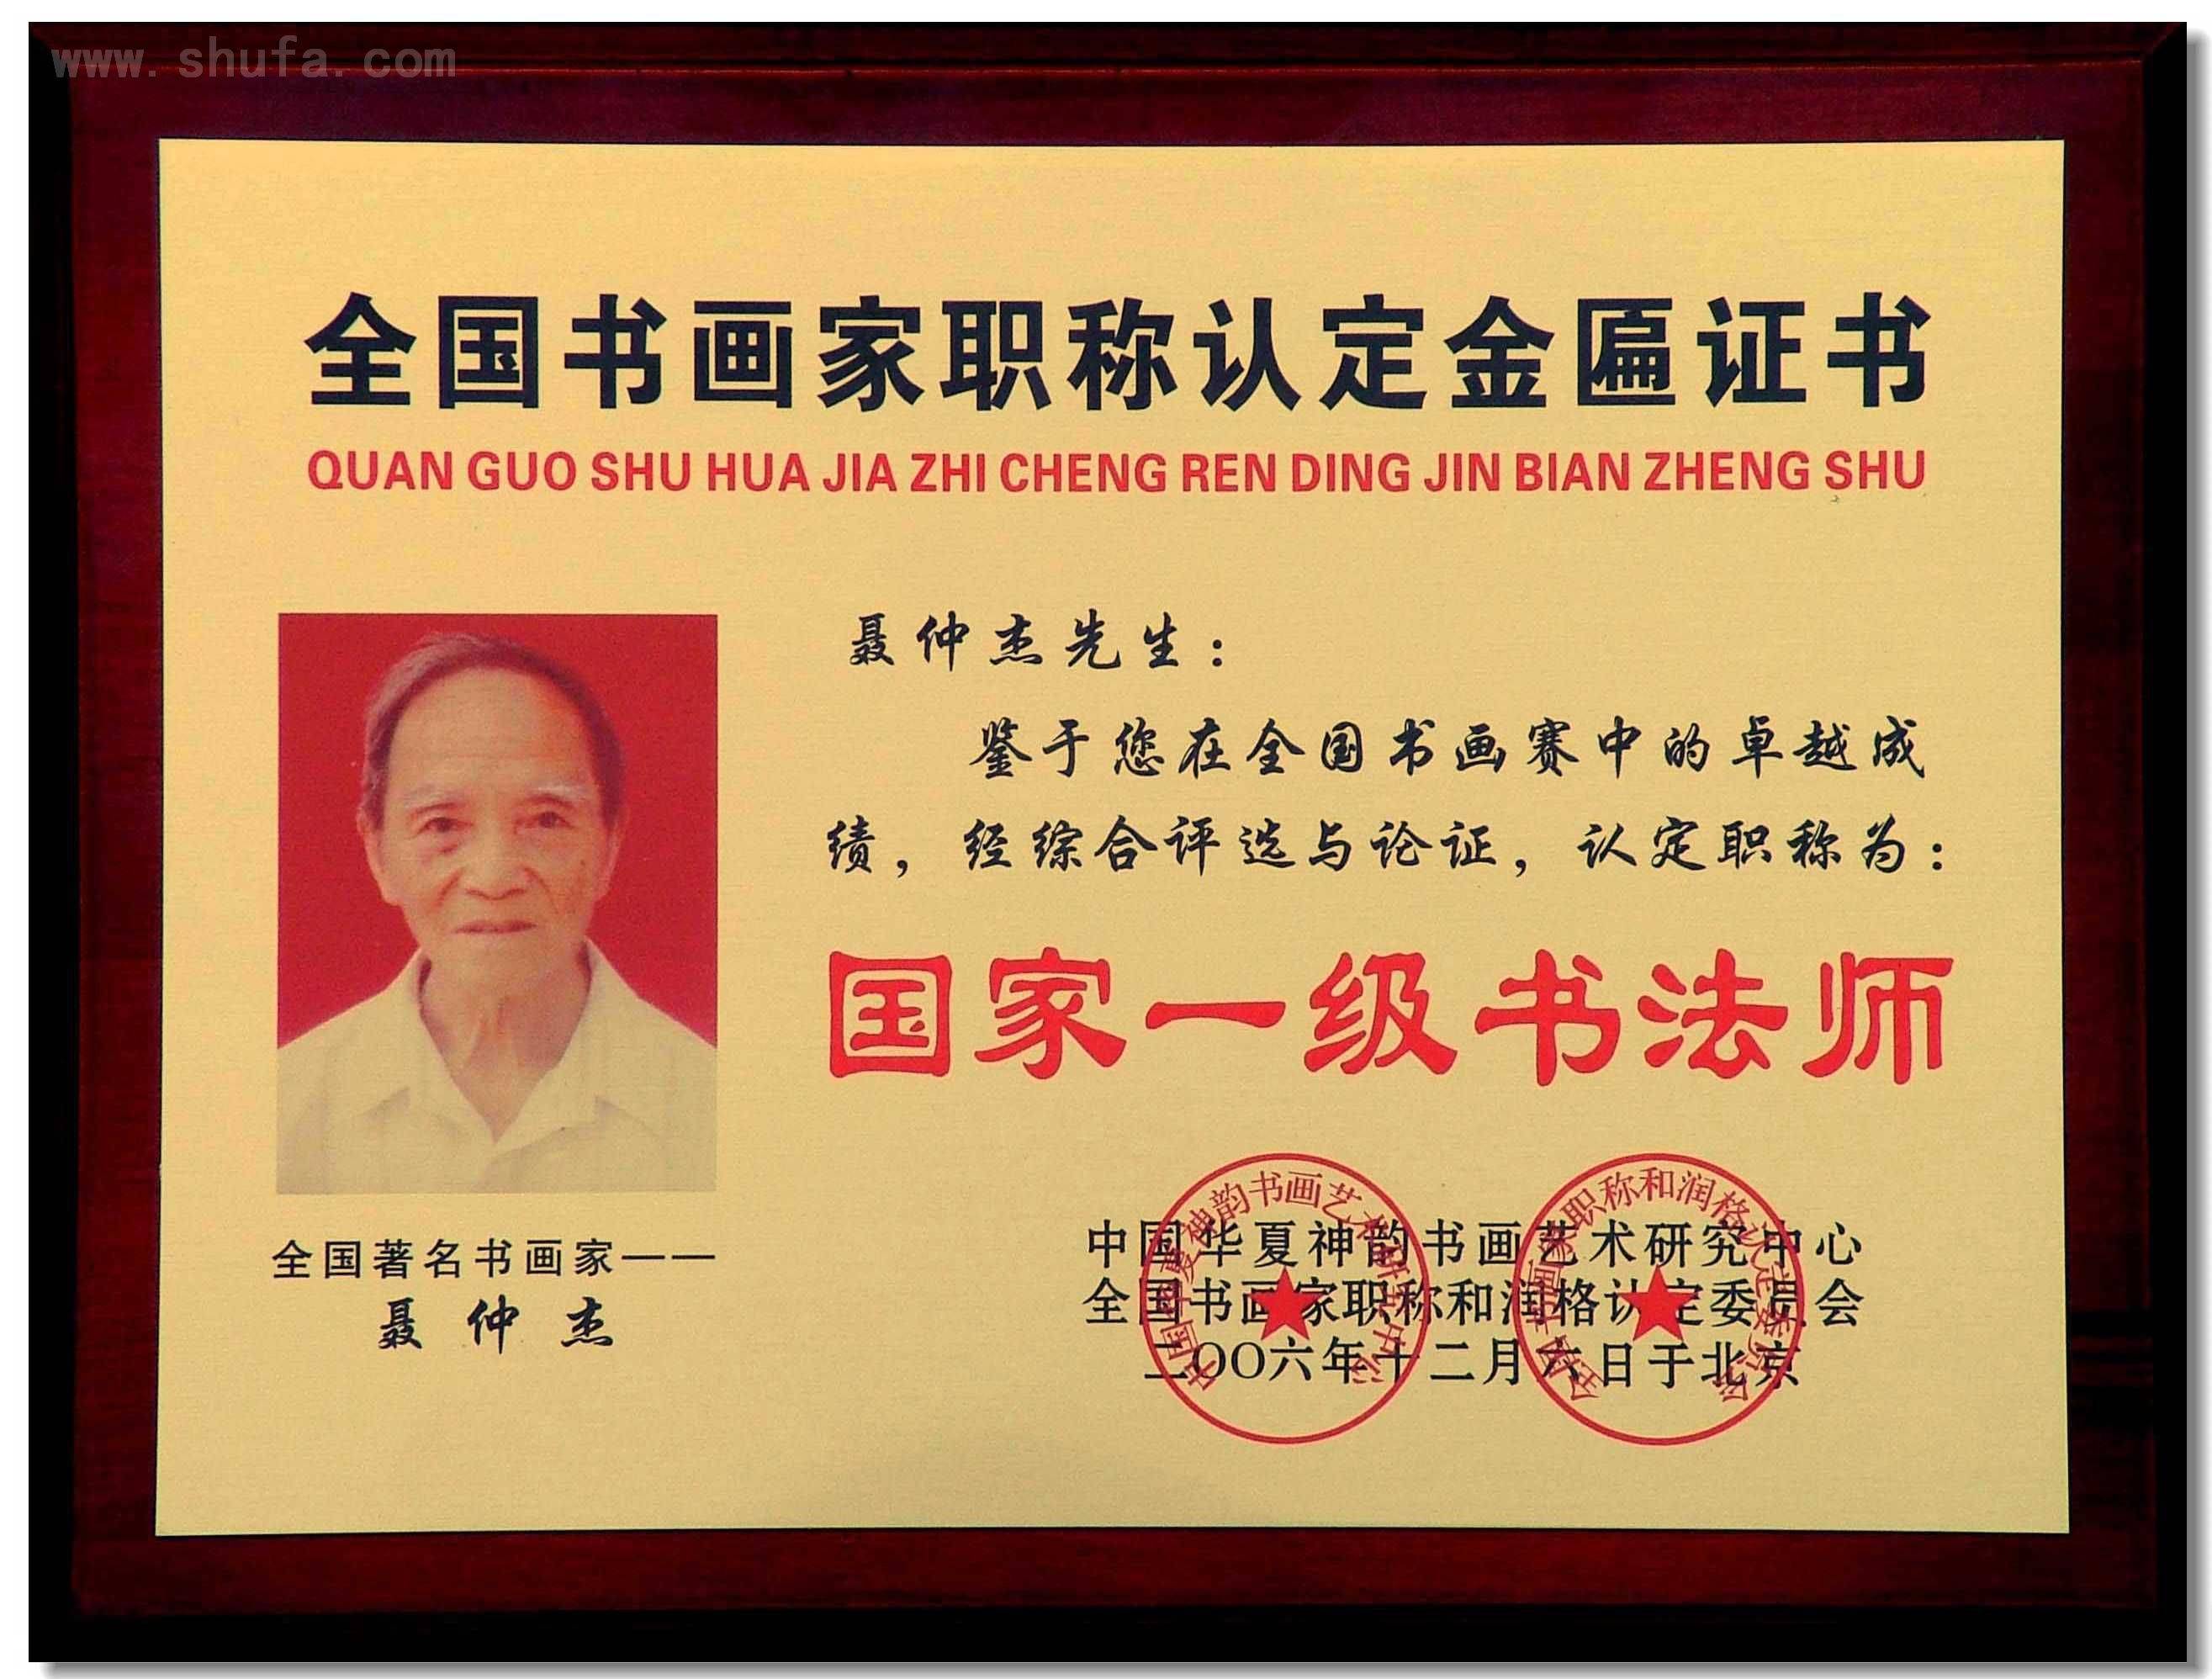 www.shufa.com
全国书画家职称认定金匾证书
QUAN GUO SHU HUA JIA ZHI CHENG REN DING JIN BIAN ZHENG SHU
聂仲杰先生：
鉴于您在全国书画赛中的卓越成
绩，经综合评选与论证，认定职称为：
国家一级书法师
全国著名书画家——
聂仲杰
中国华夏神韵书画艺术研究中心
全国书画家职称和润格认定委员会
二OO六年十二月六日于北京
中国华夏神韵书画艺术研究中心
全国书画家职称和润格认定委员会